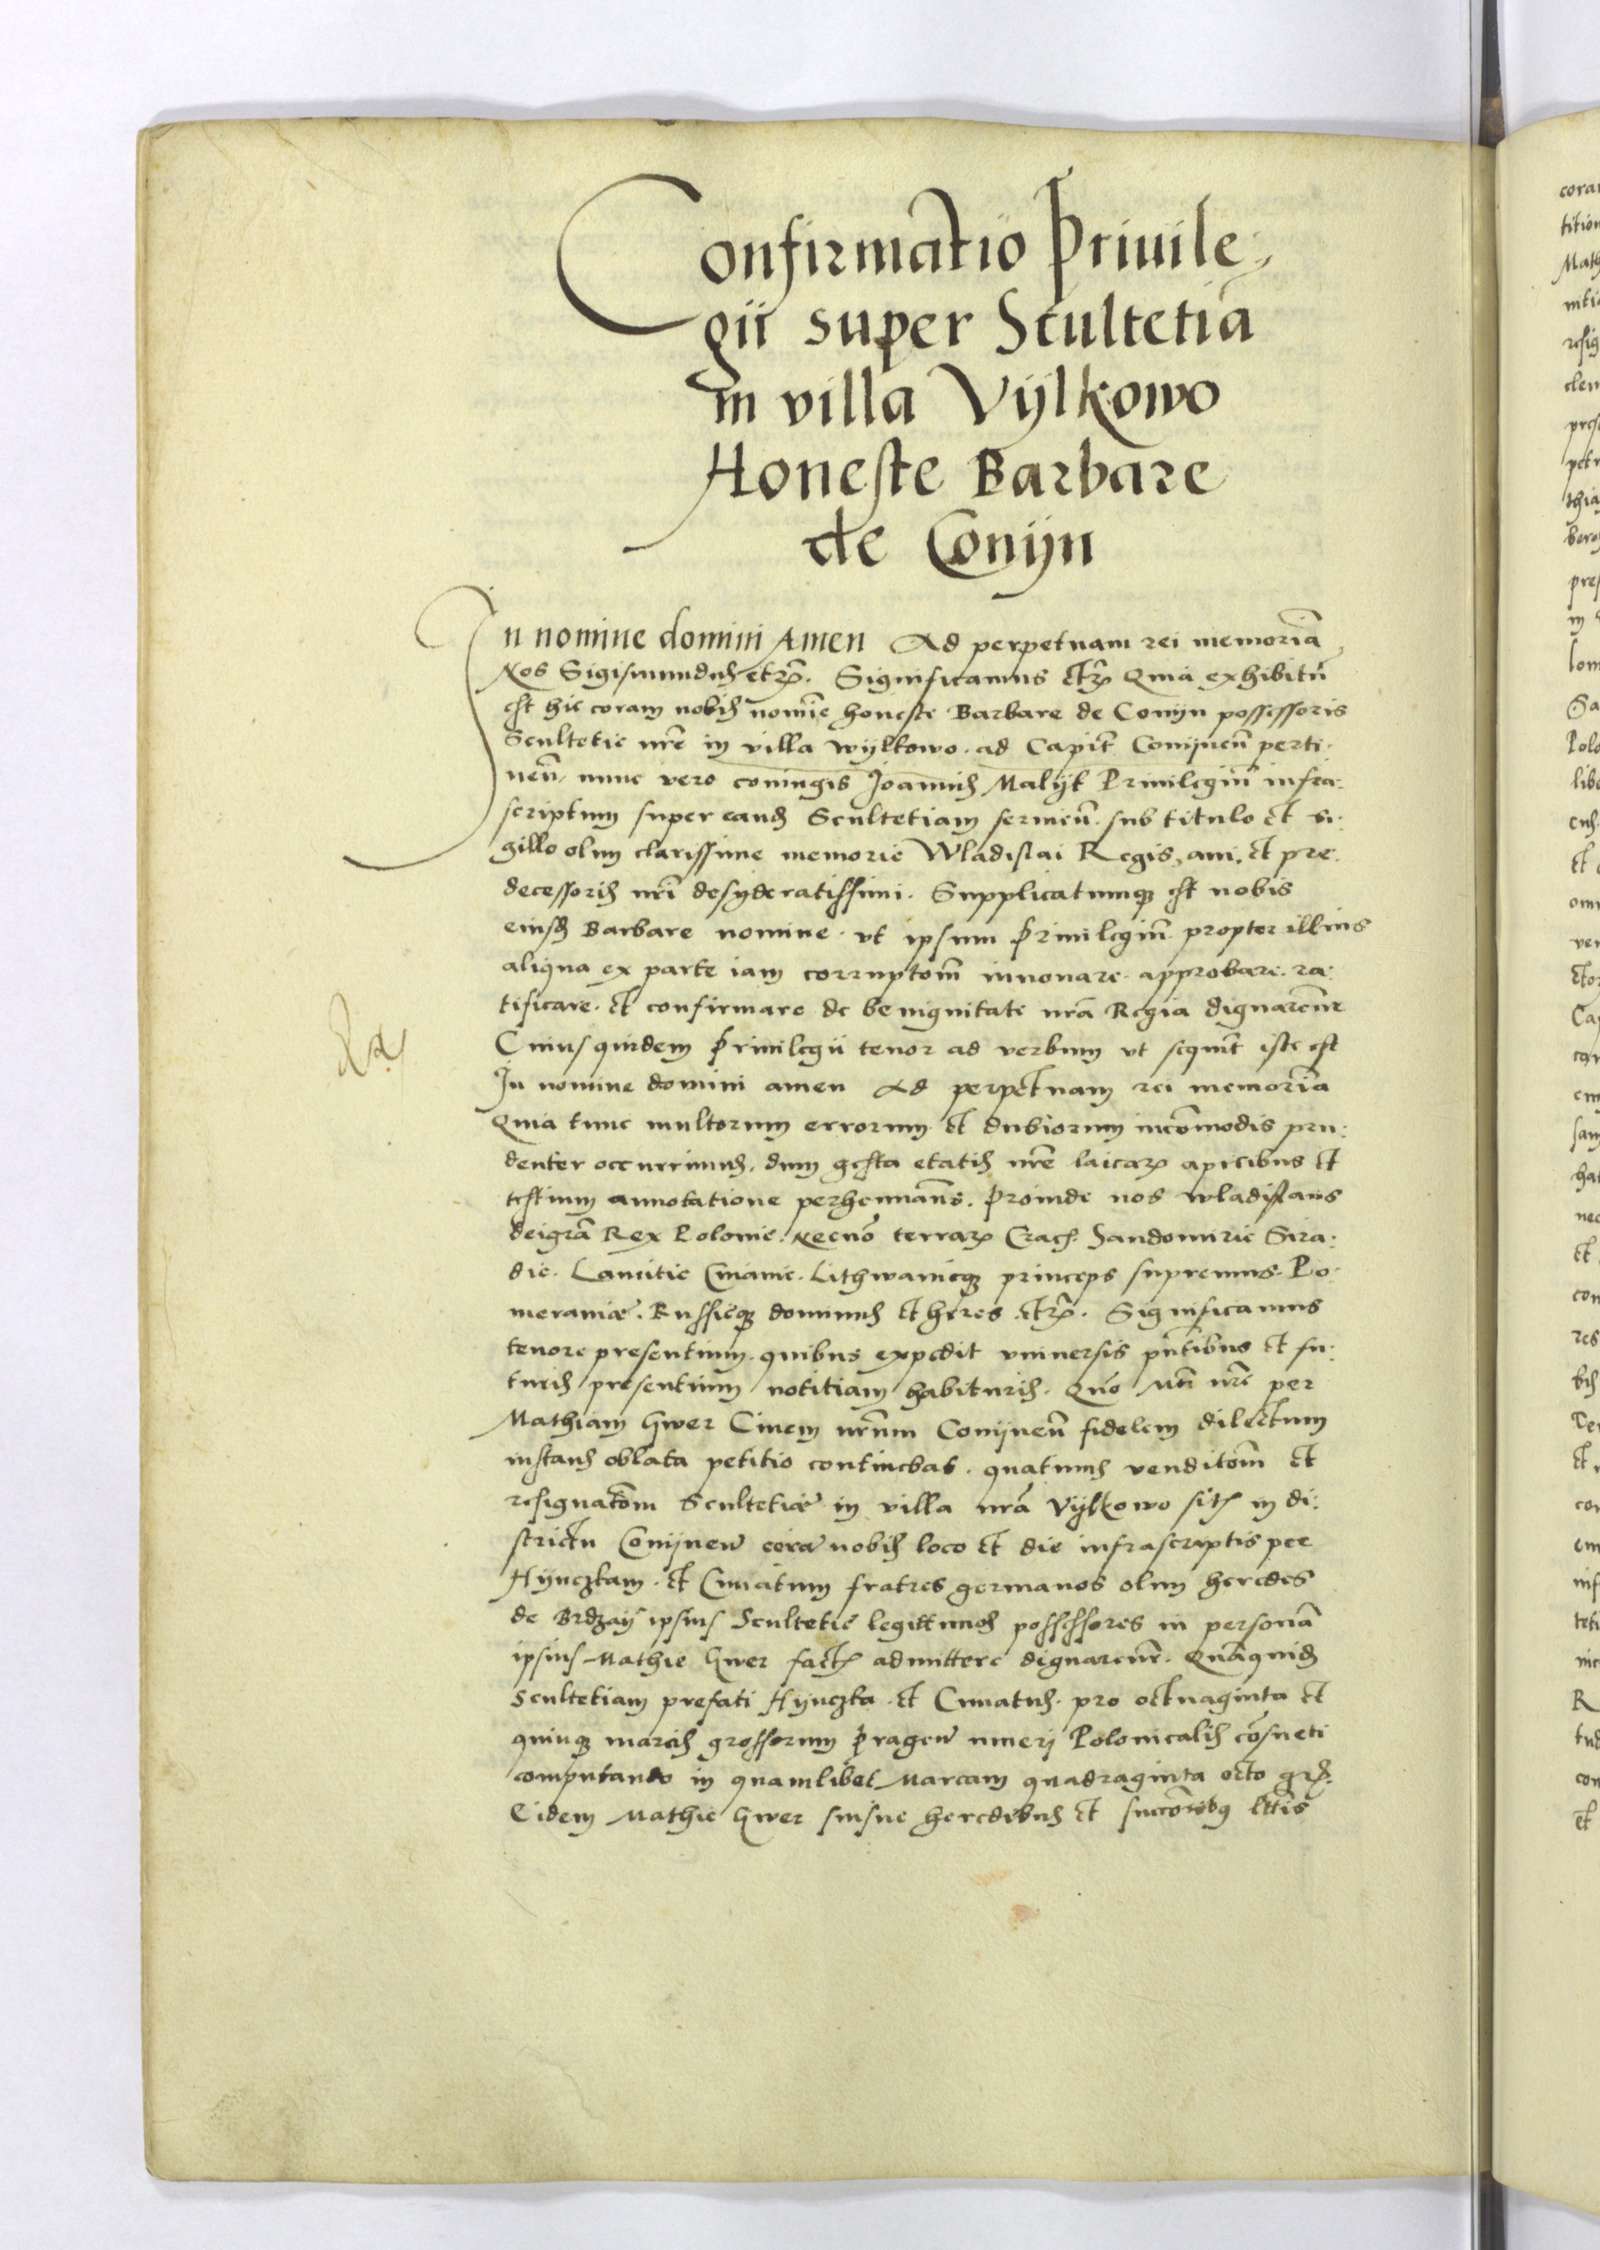 Confirmatio Priuile⸗
gii super Scultetiã
in villa Vÿlkowo
Honeste Barbare
de Conÿn
In nomine domini Amen Ad perpetuam rei memoriã
Nos Sigismundus etcꝫ. Significamus etcꝫ Quia exhibitũ
est hic coram nobis nomĩe honeste Barbare de Conÿn possessoris
Scultetie nrẽ in villa wÿlkowo. ad Capit̃ Conÿneñ perti⸗
neñ. nunc vero coniugis Joannis Malÿk Priuilegiũ infra⸗
scriptum super eand̃ Scultetiam serui eñ. sub titulo et si⸗
gillo olim clarissime memorie Wladislai Regis, aui, et pre⸗
decessoris nrĩ desyderatissimi. Supplicatumqꝫ est nobis
eiusd̃ Barbare nomine. vt ipsum Priuilegiũ propter illius
aliqua ex parte iam corruptoẽm innouare. approbare. ra⸗
tificare. et confirmare de benignitate nrã Regia dignaremr̃
Cuius quidem Priuilegii tenor ad verbum vt sequit̃ iste est
In nomine domini amen Ad perpetuam rei memoriã
Quia tunc multorum errorum et dubiorum incõmodis pru⸗
denter occurrimus, dum gesta etatis nrẽ laicaꝝ apicibus et
testium annotatione perhennam̃s. Proinde nos wladislaus
dei grã Rex Polonie. Necnõ terraꝝ Crac̃. Sandomirie Sira⸗
die. Lancitie Cuiauie. Lithwanieqꝫ princeps supremus. Po⸗
meranie. Russieqꝫ dominus et heres etcꝫ. Significamus
tenore presentium. quibus expedit vniuersis pñtibus et fu⸗
turis presentium notitiam habituris. Quõ Mti nrẽ per
Mathiam Gwer Ciuem nrũm Conÿneñ fidelem dilectum
instans oblata petitio continebat. quatinus venditoẽm et
resignatoẽm Scultetie in villa nrã Vÿlkowo site in di⸗
strictu Conÿneñ corã nobis loco et die infrascriptis per
Hÿnczkam. et Cunatum fratres germanos olim heredes
de Brdzaÿ ipsius Scultetie legittimos possessores in personã
ipsius Mathie Gwer factꝫ admittere dignaremr̃. Quãquid̃
Scultetiam prefati Hÿnczka. et Cunatus. pro octuaginta et
quinqꝫ marcis grossorum Prageñ numeri Polonicalis cõsueti
computando in quamlibet Marcam quadraginta octo grꝭ.
Eidem Mathie Gwer suisue heredibus et succorẽibꝫ lttĩs